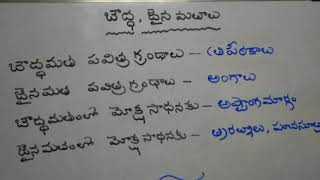 బౌద్ధ, జైన మతాలు
బౌద్ధమత పవిత్ర గ్రంథాలు - త్రిపీఠకాలు
జైనమత పవిత్ర గ్రంథాలు - అంగాలు
బౌద్ధమతంలో మోక్ష సాధనకు - అష్టాంగమార్గం
జైనమతంలో మోక్ష సాధనకు - త్రిరత్నాలు,